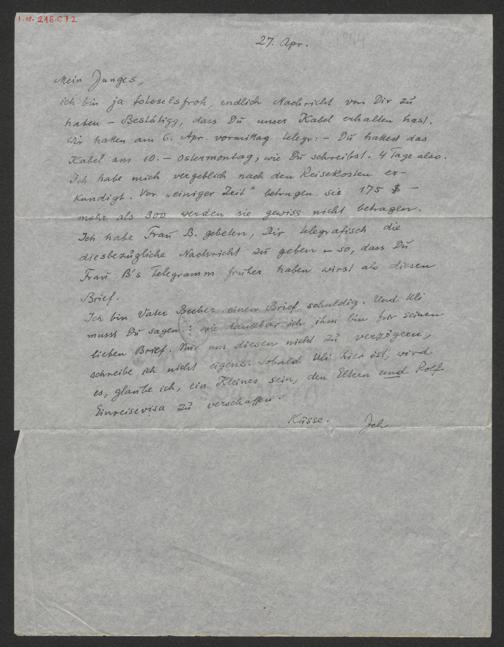 I.N. 216.572
1944
27. Apr.
Mein Junges,
ich bin ja so froh, endlich Nachricht von Dir zu
haben – Bestätigg, dass Du unser Kabel erhalten hast.
Wir hatten am 6. Apr. vormittag telegr. – Du hattest das
Kabel am 10. – Ostermontag, wie Du schreibst. 4 Tage also.
Ich habe mich vergeblich nach den Reisekosten er-
kundigt. Vor „einiger Zeit" betrugen sie 175 $ –
mehr als 300 werden sie gewiss nicht betragen.
Ich habe Frau B. gebeten, Dir telegrafisch die
diesbezügliche Nachricht zu geben – so, dass Du
Frau B's Telegramm früher haben wirst als diesen
Brief.
Ich bin Vater Becher einen Brief schuldig. Und Uli
musst Du sagen: wie dankbar ich ihm bin für seinen
lieben Brief. Nur um diesen nicht zu verzögern,
schreibe ich nicht eigens. Sobald Uli hier ist, wird
es, glaube ich, ein Kleines sein, den Eltern und Rolf
Einreisevisa zu verschaffen.
Küsse.